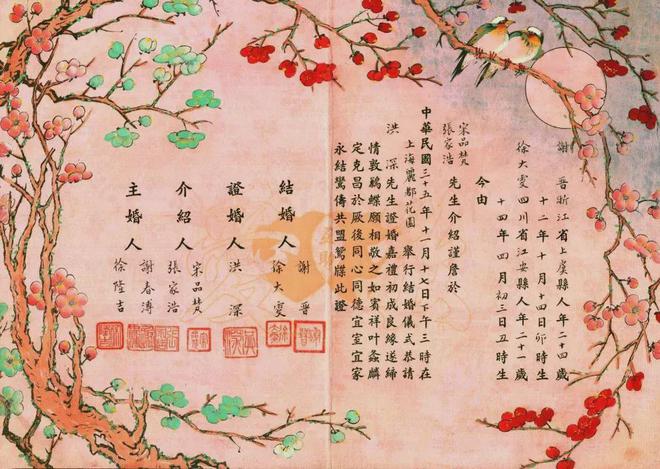 謝 晉浙江省上虞縣人年二十四歲
十二年十月十四日卯時生
徐大雯四川省江安縣人年二十一歲
十四年四月初三日丑時生
今由
宋品梵
張家浩 先生介紹謹詹於
中華民國三十五年十一月十七日下午三時在
上海麗都花園 舉行結婚儀式恭請
洪 深先生證婚嘉禮初成良緣遂締
情敦鶼鰈願相敬之如賓祥叶螽麟
定克昌於厥後同心同德宜室宜家
永結鸞儔共盟鴛牒此證
結婚人 謝 晉
徐大雯
證婚人 洪 深
介紹人 宋品梵
張家浩
主婚人 謝春溥
徐隆吉